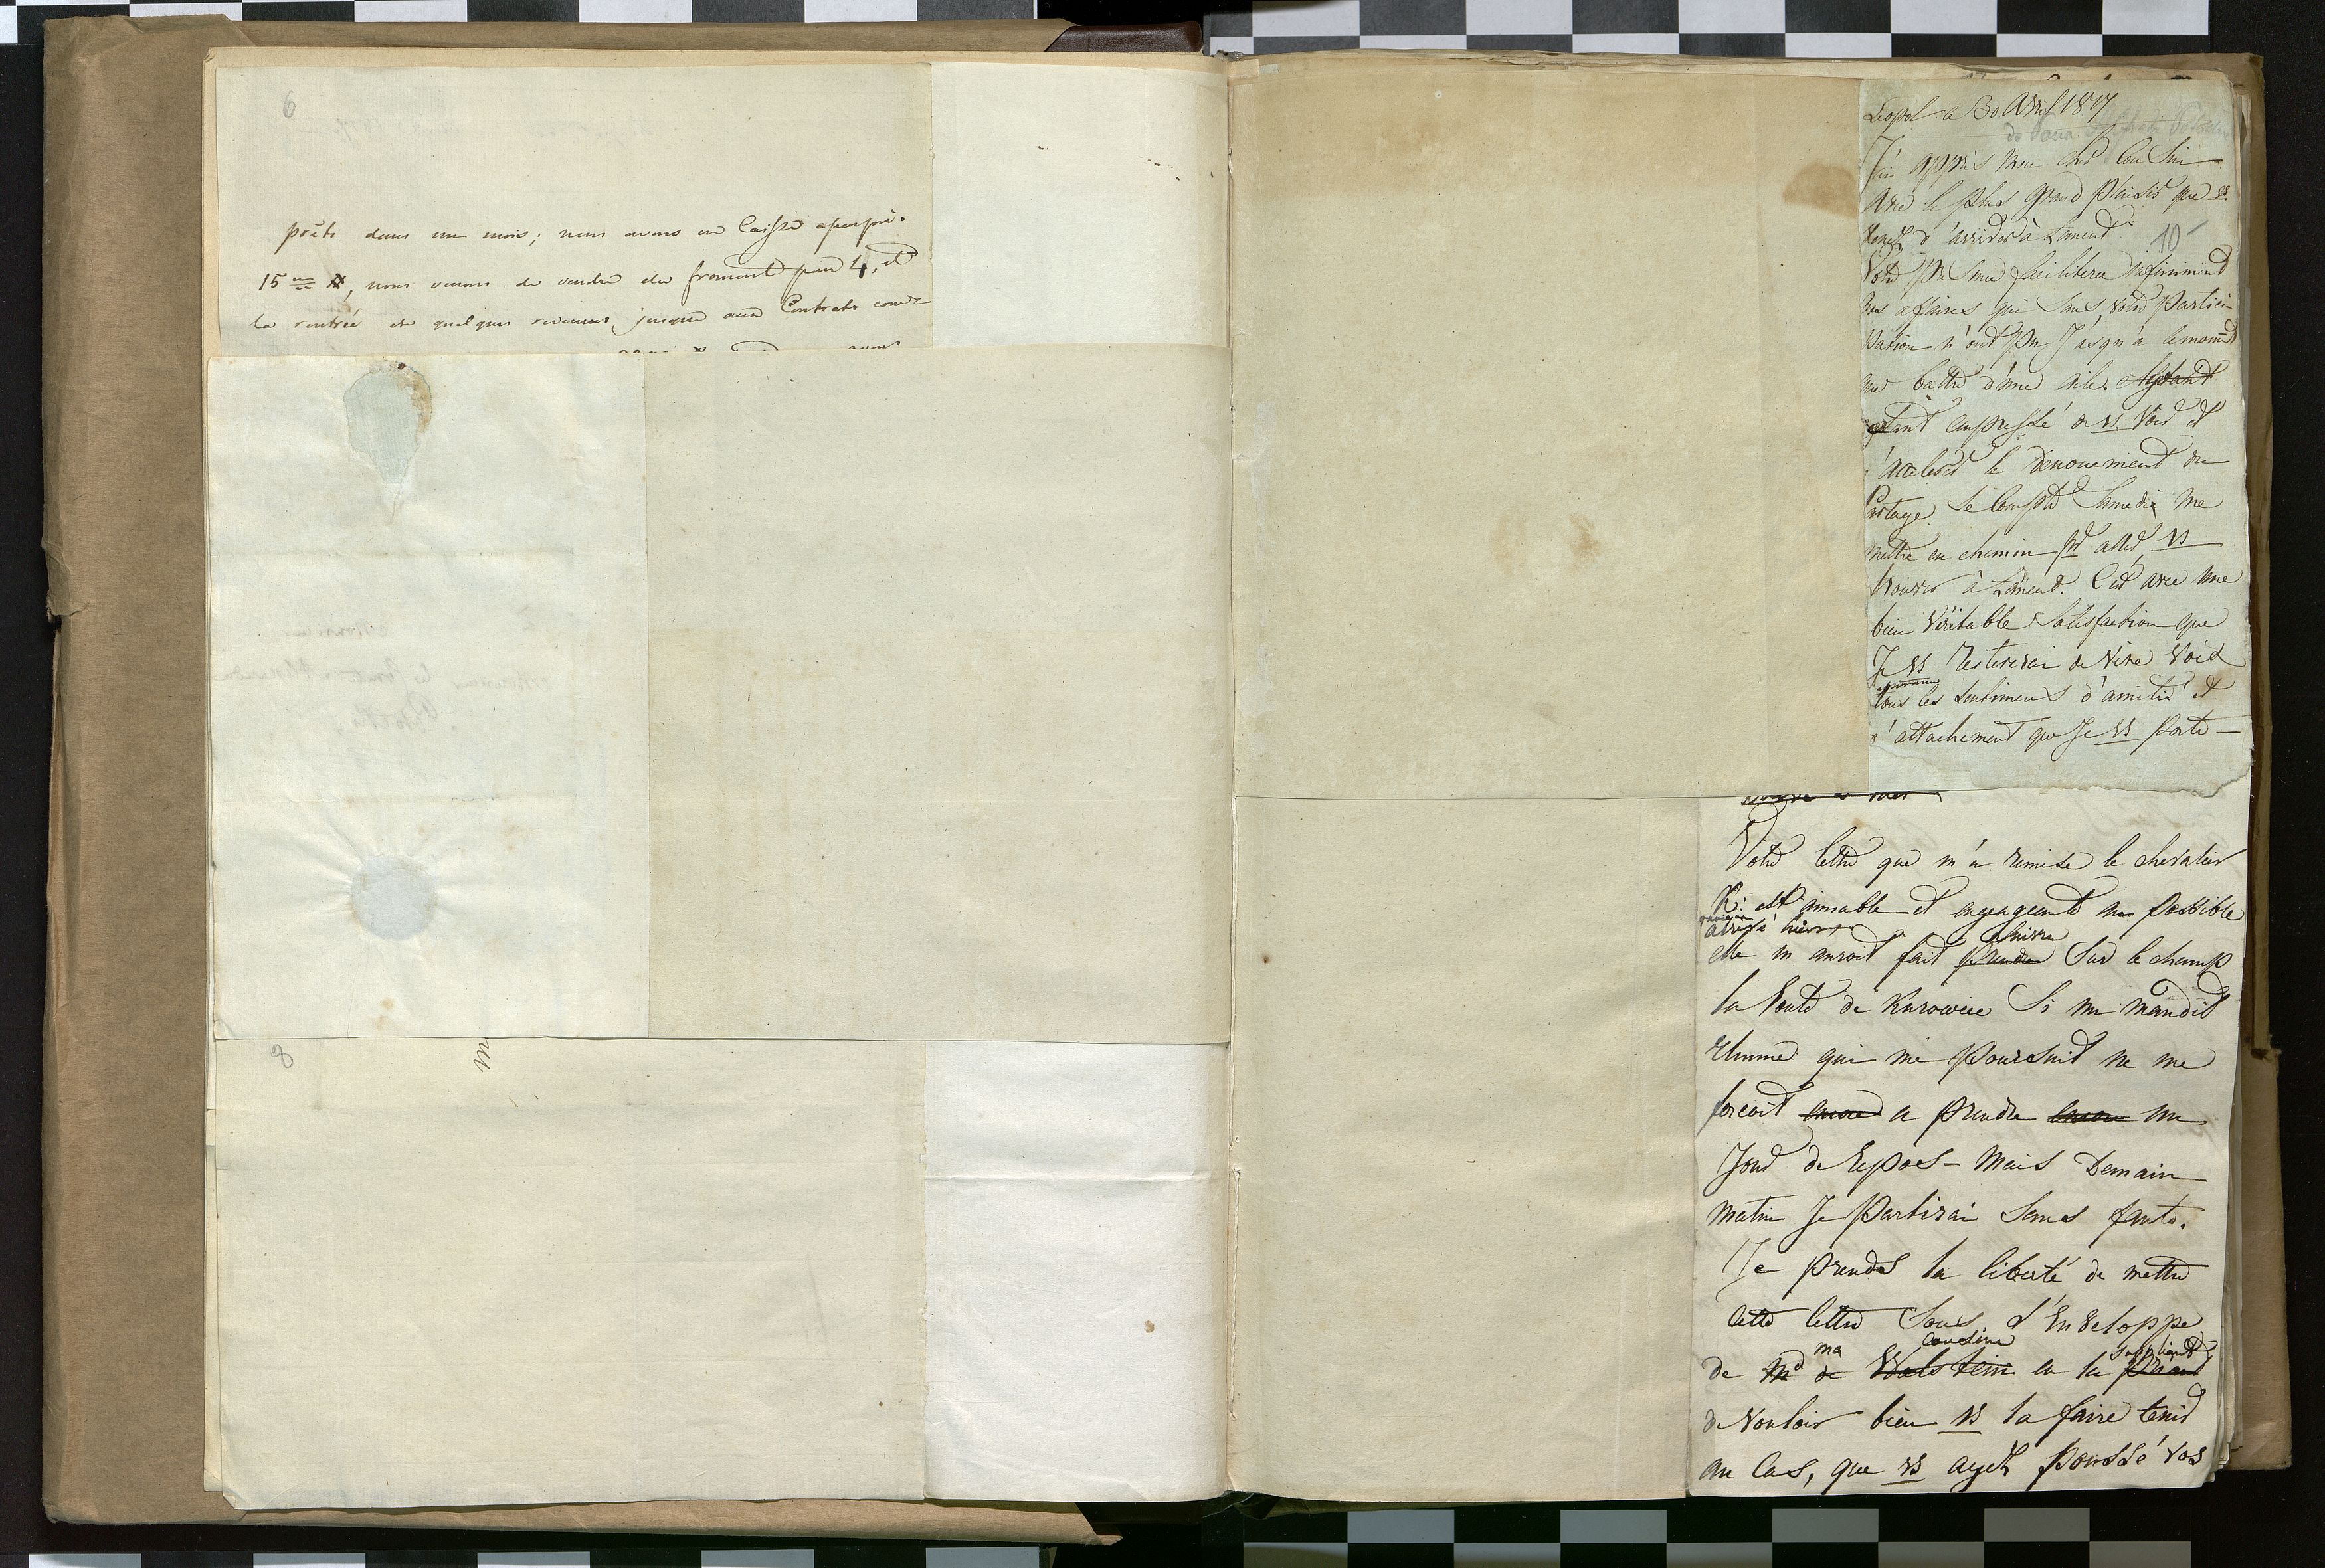 6
prêts dans un mois; nous avons en Caisse apeuprè.
15 m #, nous venons de vendre du froment pour 4, et
la rentrée de quelques revenus, jusque aux Contrats
8
m
Leopol le 30 Avril 1817
J'ai appris mon cher Cousin
avec le plus grand plaisir que vs
venez d'arriver à Lancut.
10
Votre pr facilitera infiniment
nos affaires qui sans votre partici-
pation n'ont pu jusqu'à le moment
que battre d'une aile.
etant empressé de vs voir et
d'accelerer le denouement du
Partage Je compte Samedi me
mettre en chemin pr aller vs
trouver à Lancut. C'est avec une
bien véritable satisfaction que
Je vs restererai de vive voix
tous les sentimens d'amitié et
d'attachement que Je vs porte —
Votre lettre que m'a remise le chevalier
K: est aimable et engageante au possible
arrivé hier
suivre
elle m'auroit fait prendre sur le champ
la route de Kurowice si un maudit
rhume qui me poursuit ne me
forcoit encore a prendre encore un
Jour de Repos — Mais Demain
matin Je partirai sans faute.
Je prends la liberté de mettre
cette lettre sous l'Enveloppe
ma cousine suppliant
de Md de Walstein en la priant
de vouloir bien vs la faire tenir
au Cas, que vs ayez poussé vos